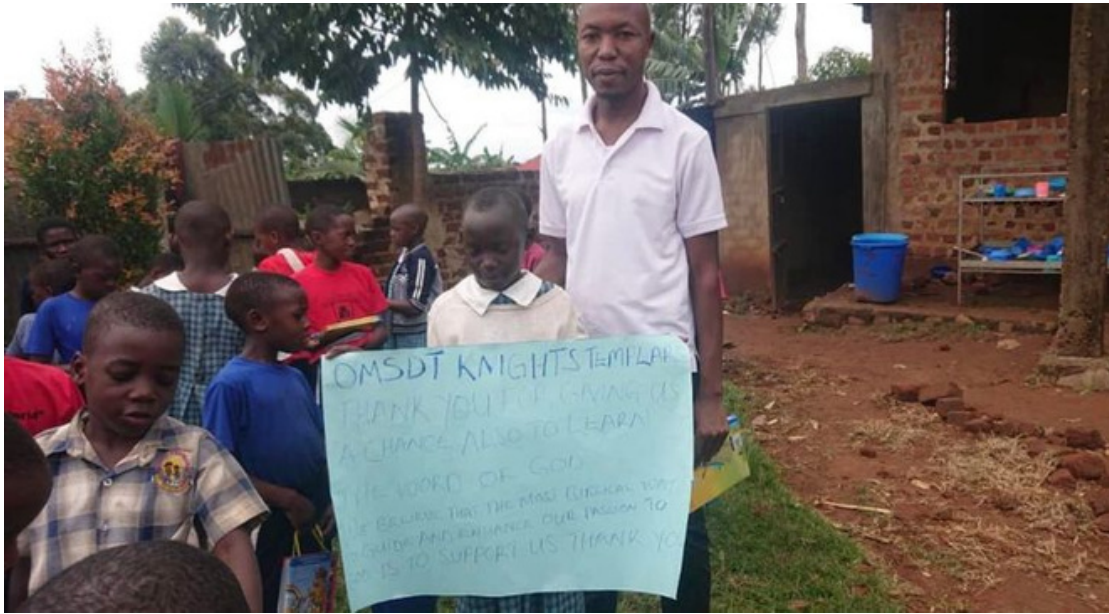 OMSDT KNIGHTS TEMPLAR
THANK YOU FOR GIVING US
A CHANCE ALSO TO LEARN
THE WORD OF GOD
BELIEVE THAT THE MOST BIBLICAL WAY
GUIDE AND ENHANCE OUR PASSION TO
IS TO SUPPORT US THANK YO